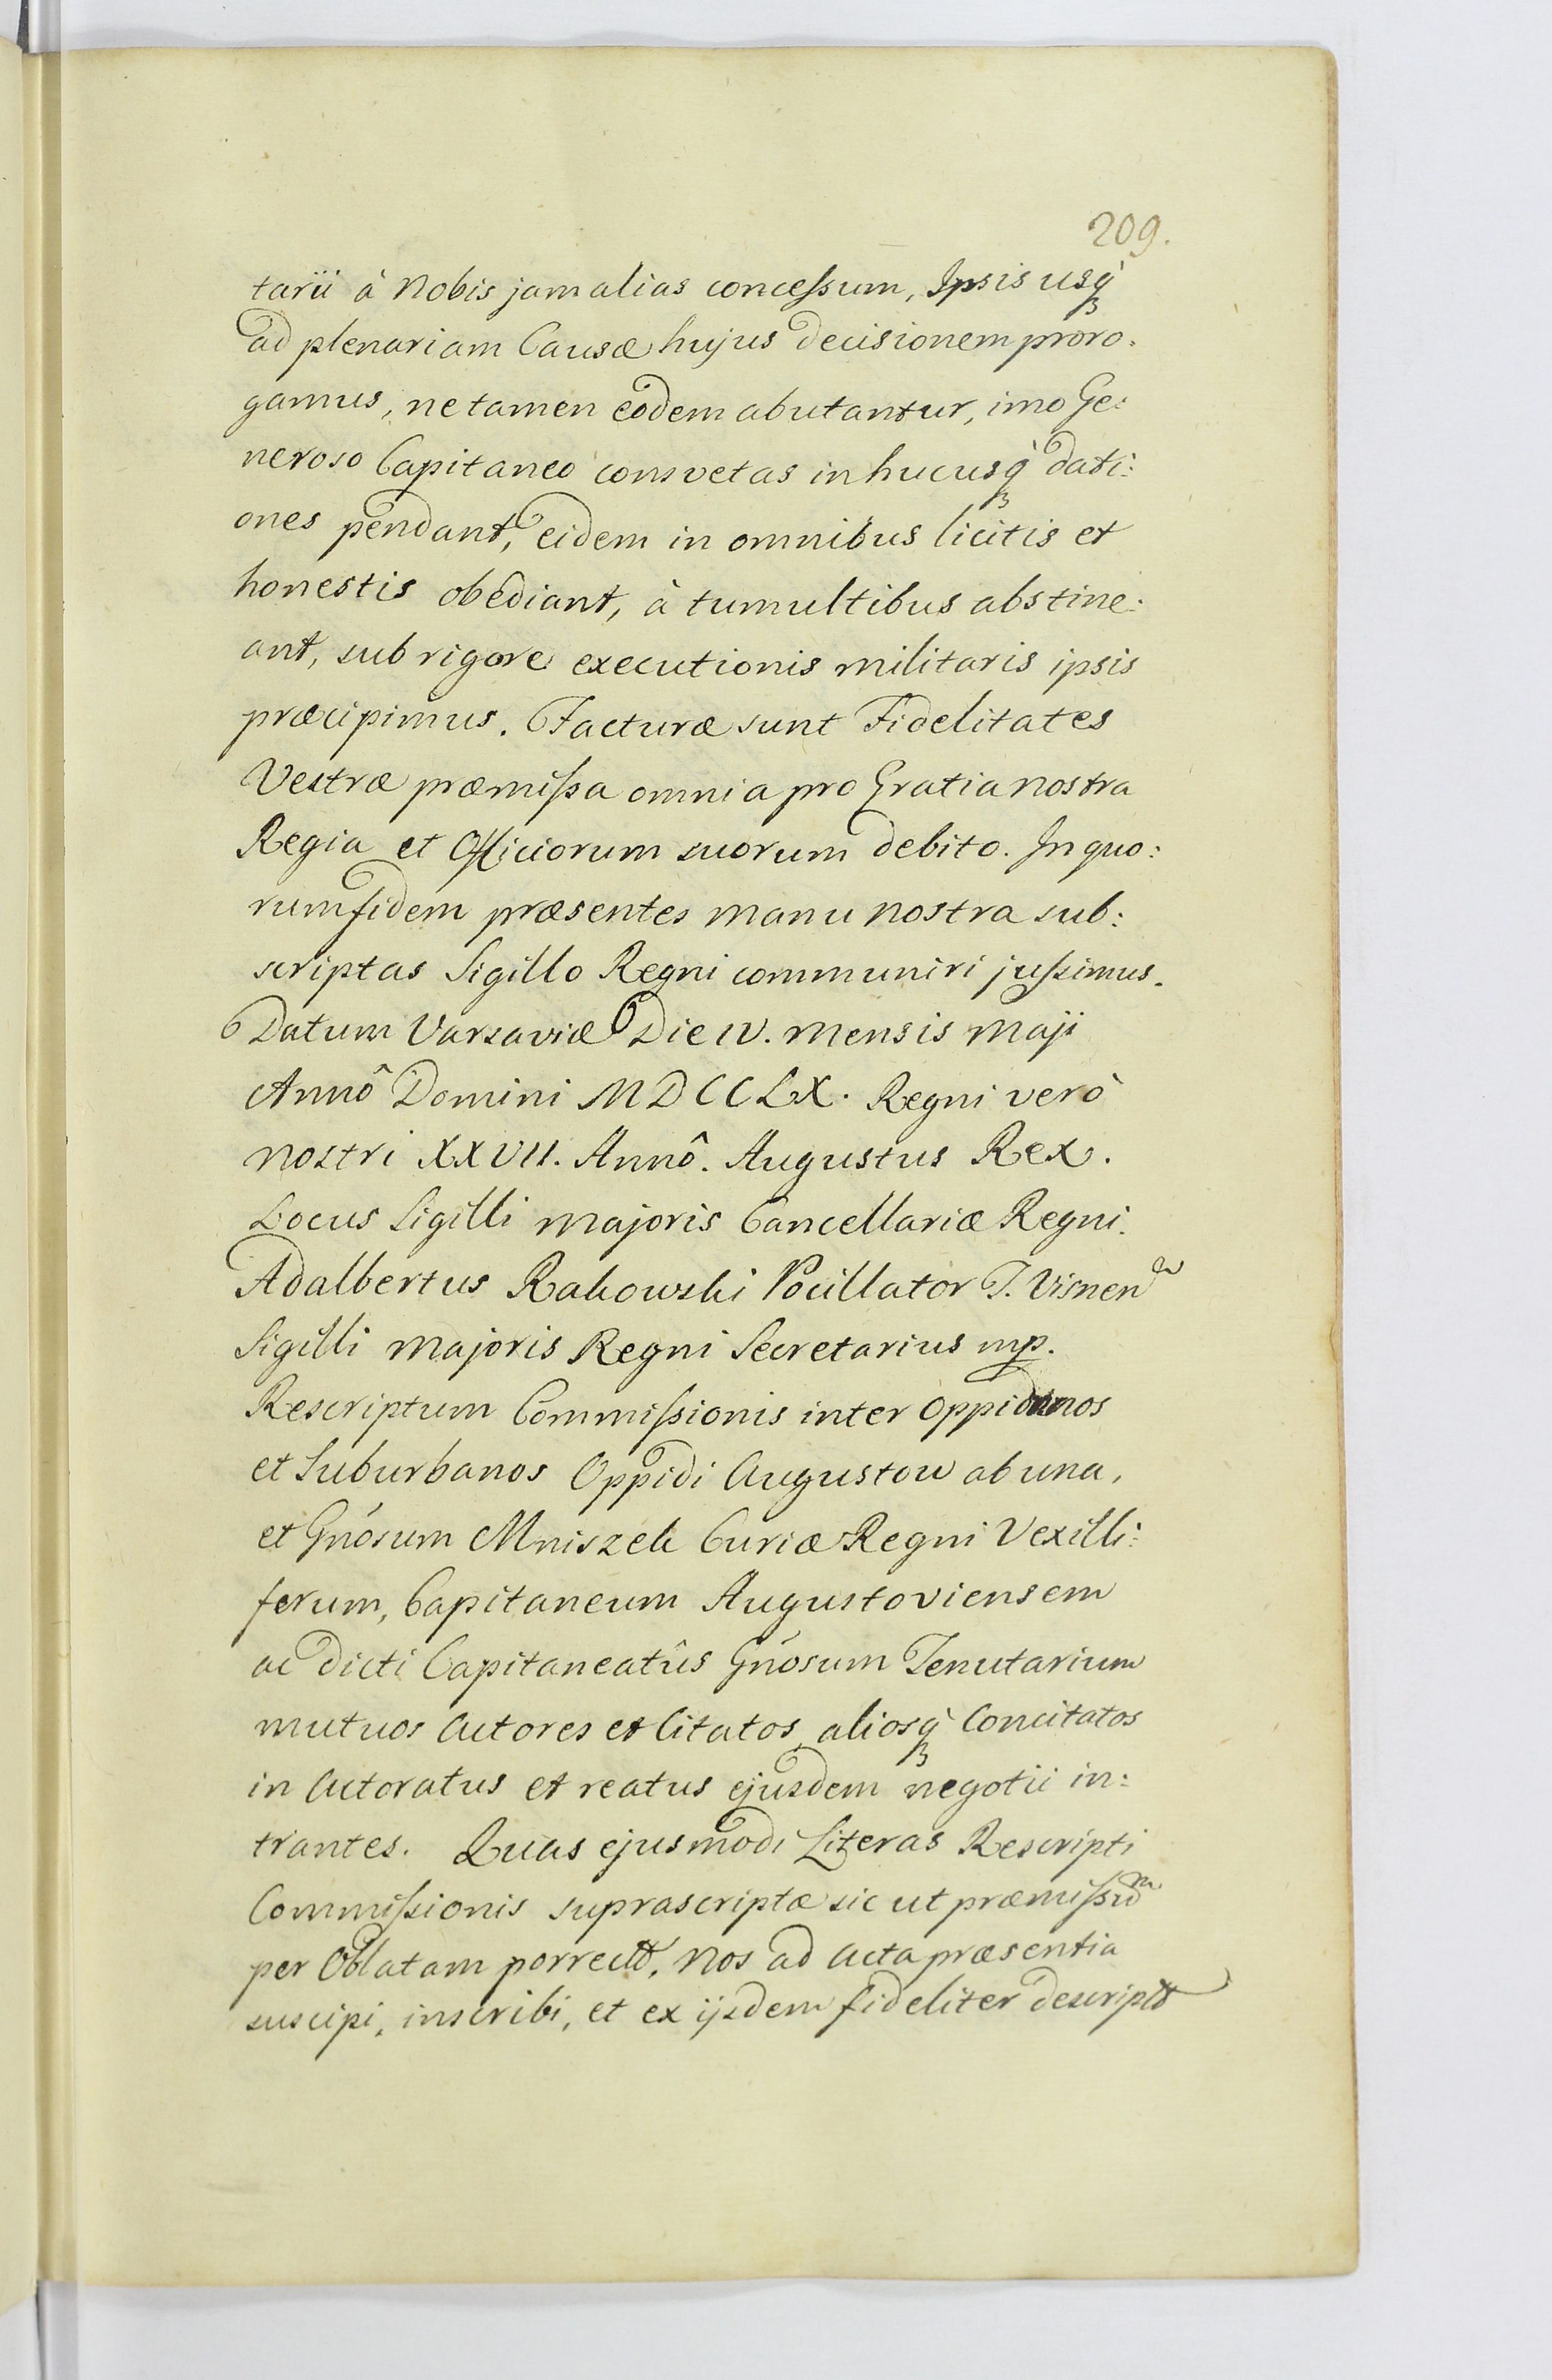 209.
tarii à Nobis jam alias concessum, Ipsis usq́ꝫ
ad plenariam Causæ hujus decisionem proro:
gamus, ne tamen eodem abutantur, imo Ge:
neroso Capitaneo consvetas in hucusq́ꝫ dati:
ones pendant, eidem in omnibus licitis et
honestis obediant, à tumultibus abstine:
ant, sub rigore executionis militaris ipsis
præcipimus. Facturæ sunt Fidelitates
Vestræ præmissa omnia pro Gratia nostra
Regia et Officiorum suorum debito. In quo:
rum fidem præsentes manu nostra sub:
scriptas Sigillo Regni communiri jussimus.
Datum Varsaviæ Die IV. Mensis Maji
Annô Domini MDCCLX. Regni verò
nostri XXVII. Annô. Augustus Rex.
Locus Sigilli Majoris Cancellariæ Regni.
Adalbertus Rakowski Pocillator T. Visnen
Sigilli Majoris Regni Secretarius mp.
Rescriptum Commissionis inter Oppidanos
et Suburbanos Oppidi Augustow ab una,
et Gnōsum Mniszek Curiæ Regni Vexilli:
ferum, Capitaneum Augustoviensem
ac dicti Capitaneatûs Gnōsum Tenutarium
mutuos Actores et Citatos, aliosq́ꝫ Concitatos
in Actoratus et reatus ejusdem negotii in:
trantes. Quas ejusmodi Literas Rescripti
Commissionis suprascriptæ sic ut præmissūm
per Oblatam porrectas, Nos ad Acta præsentia
suscipi, inscribi, et ex ijsdem fideliter descriptas